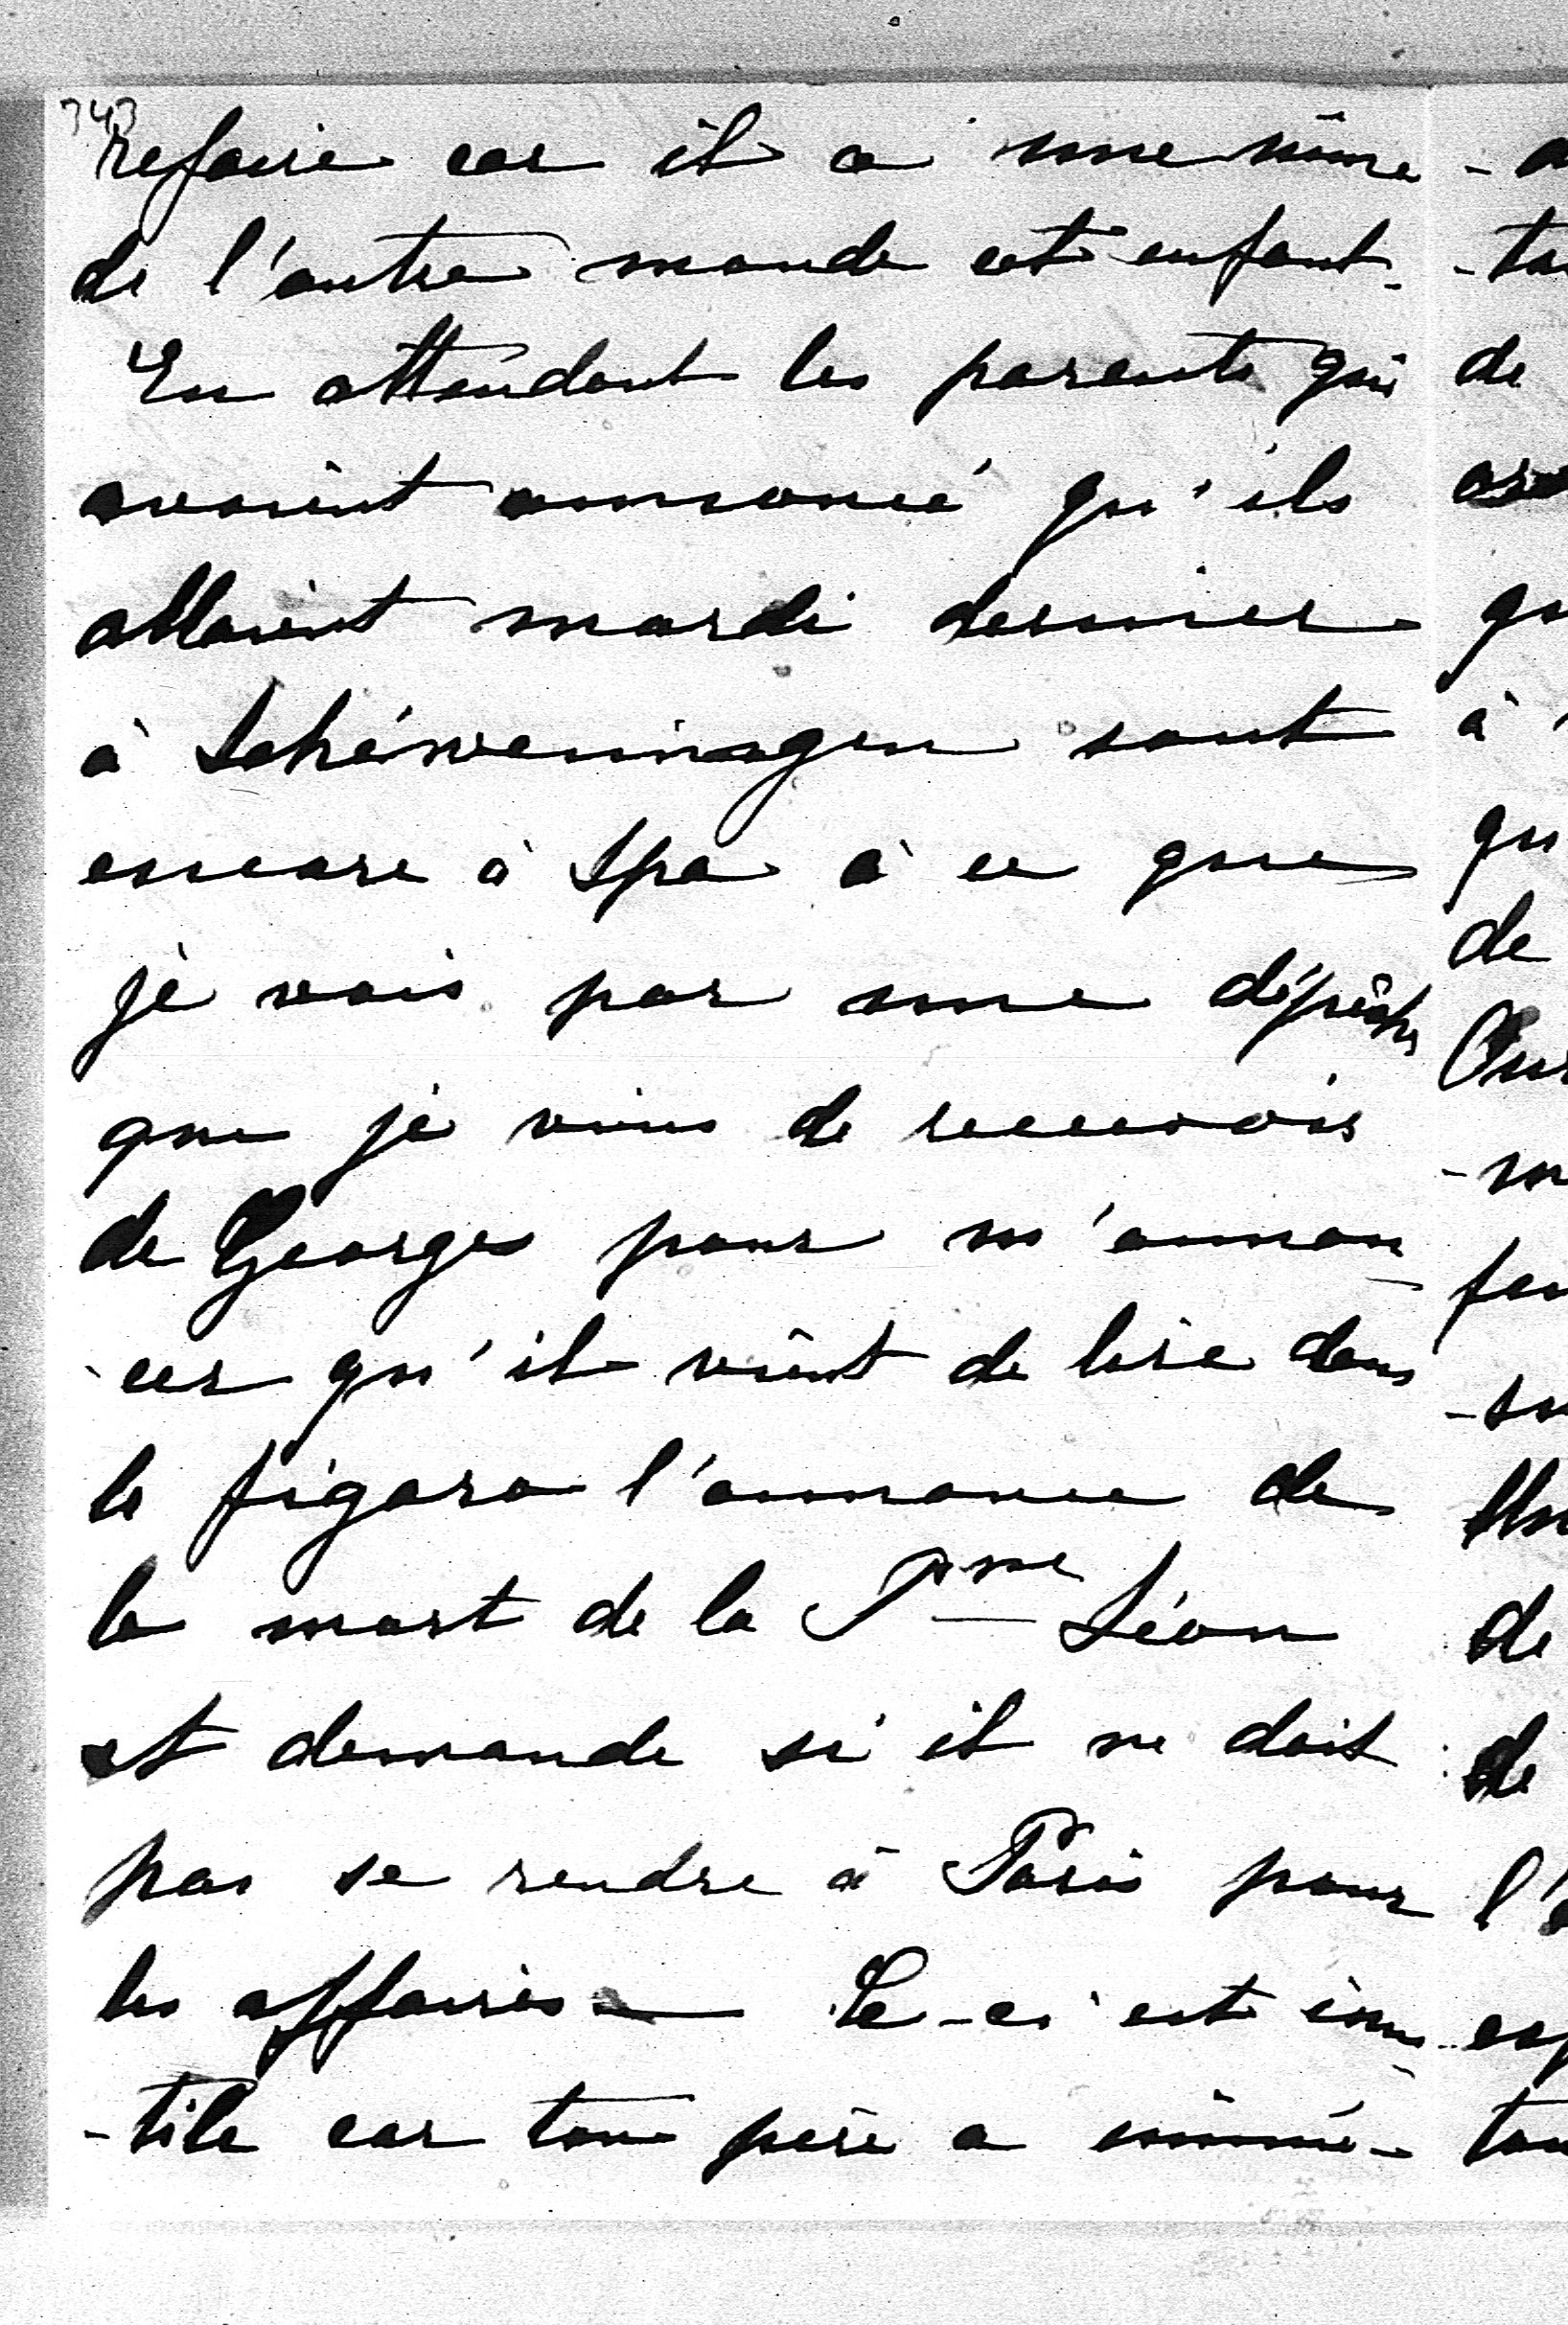 343
refaire car il a une mine
de l'autre monde cet enfant.
En attendant les parents qui
avaient annoncé qu'ils
allaient mardi dernier
à Schéweningen sont
encore à Spa à ce que
je vois par une dépêche
que je viens de recevoir
de Georges pour m'annon
-cer qu'il vient de lire dans
le figaro l'annonce de
la mort de la Pme Léon
et demande si il ne doit
pas se rendre à Paris pour
les affaires — Ce-ci est inu
-tile car ton père a immé-